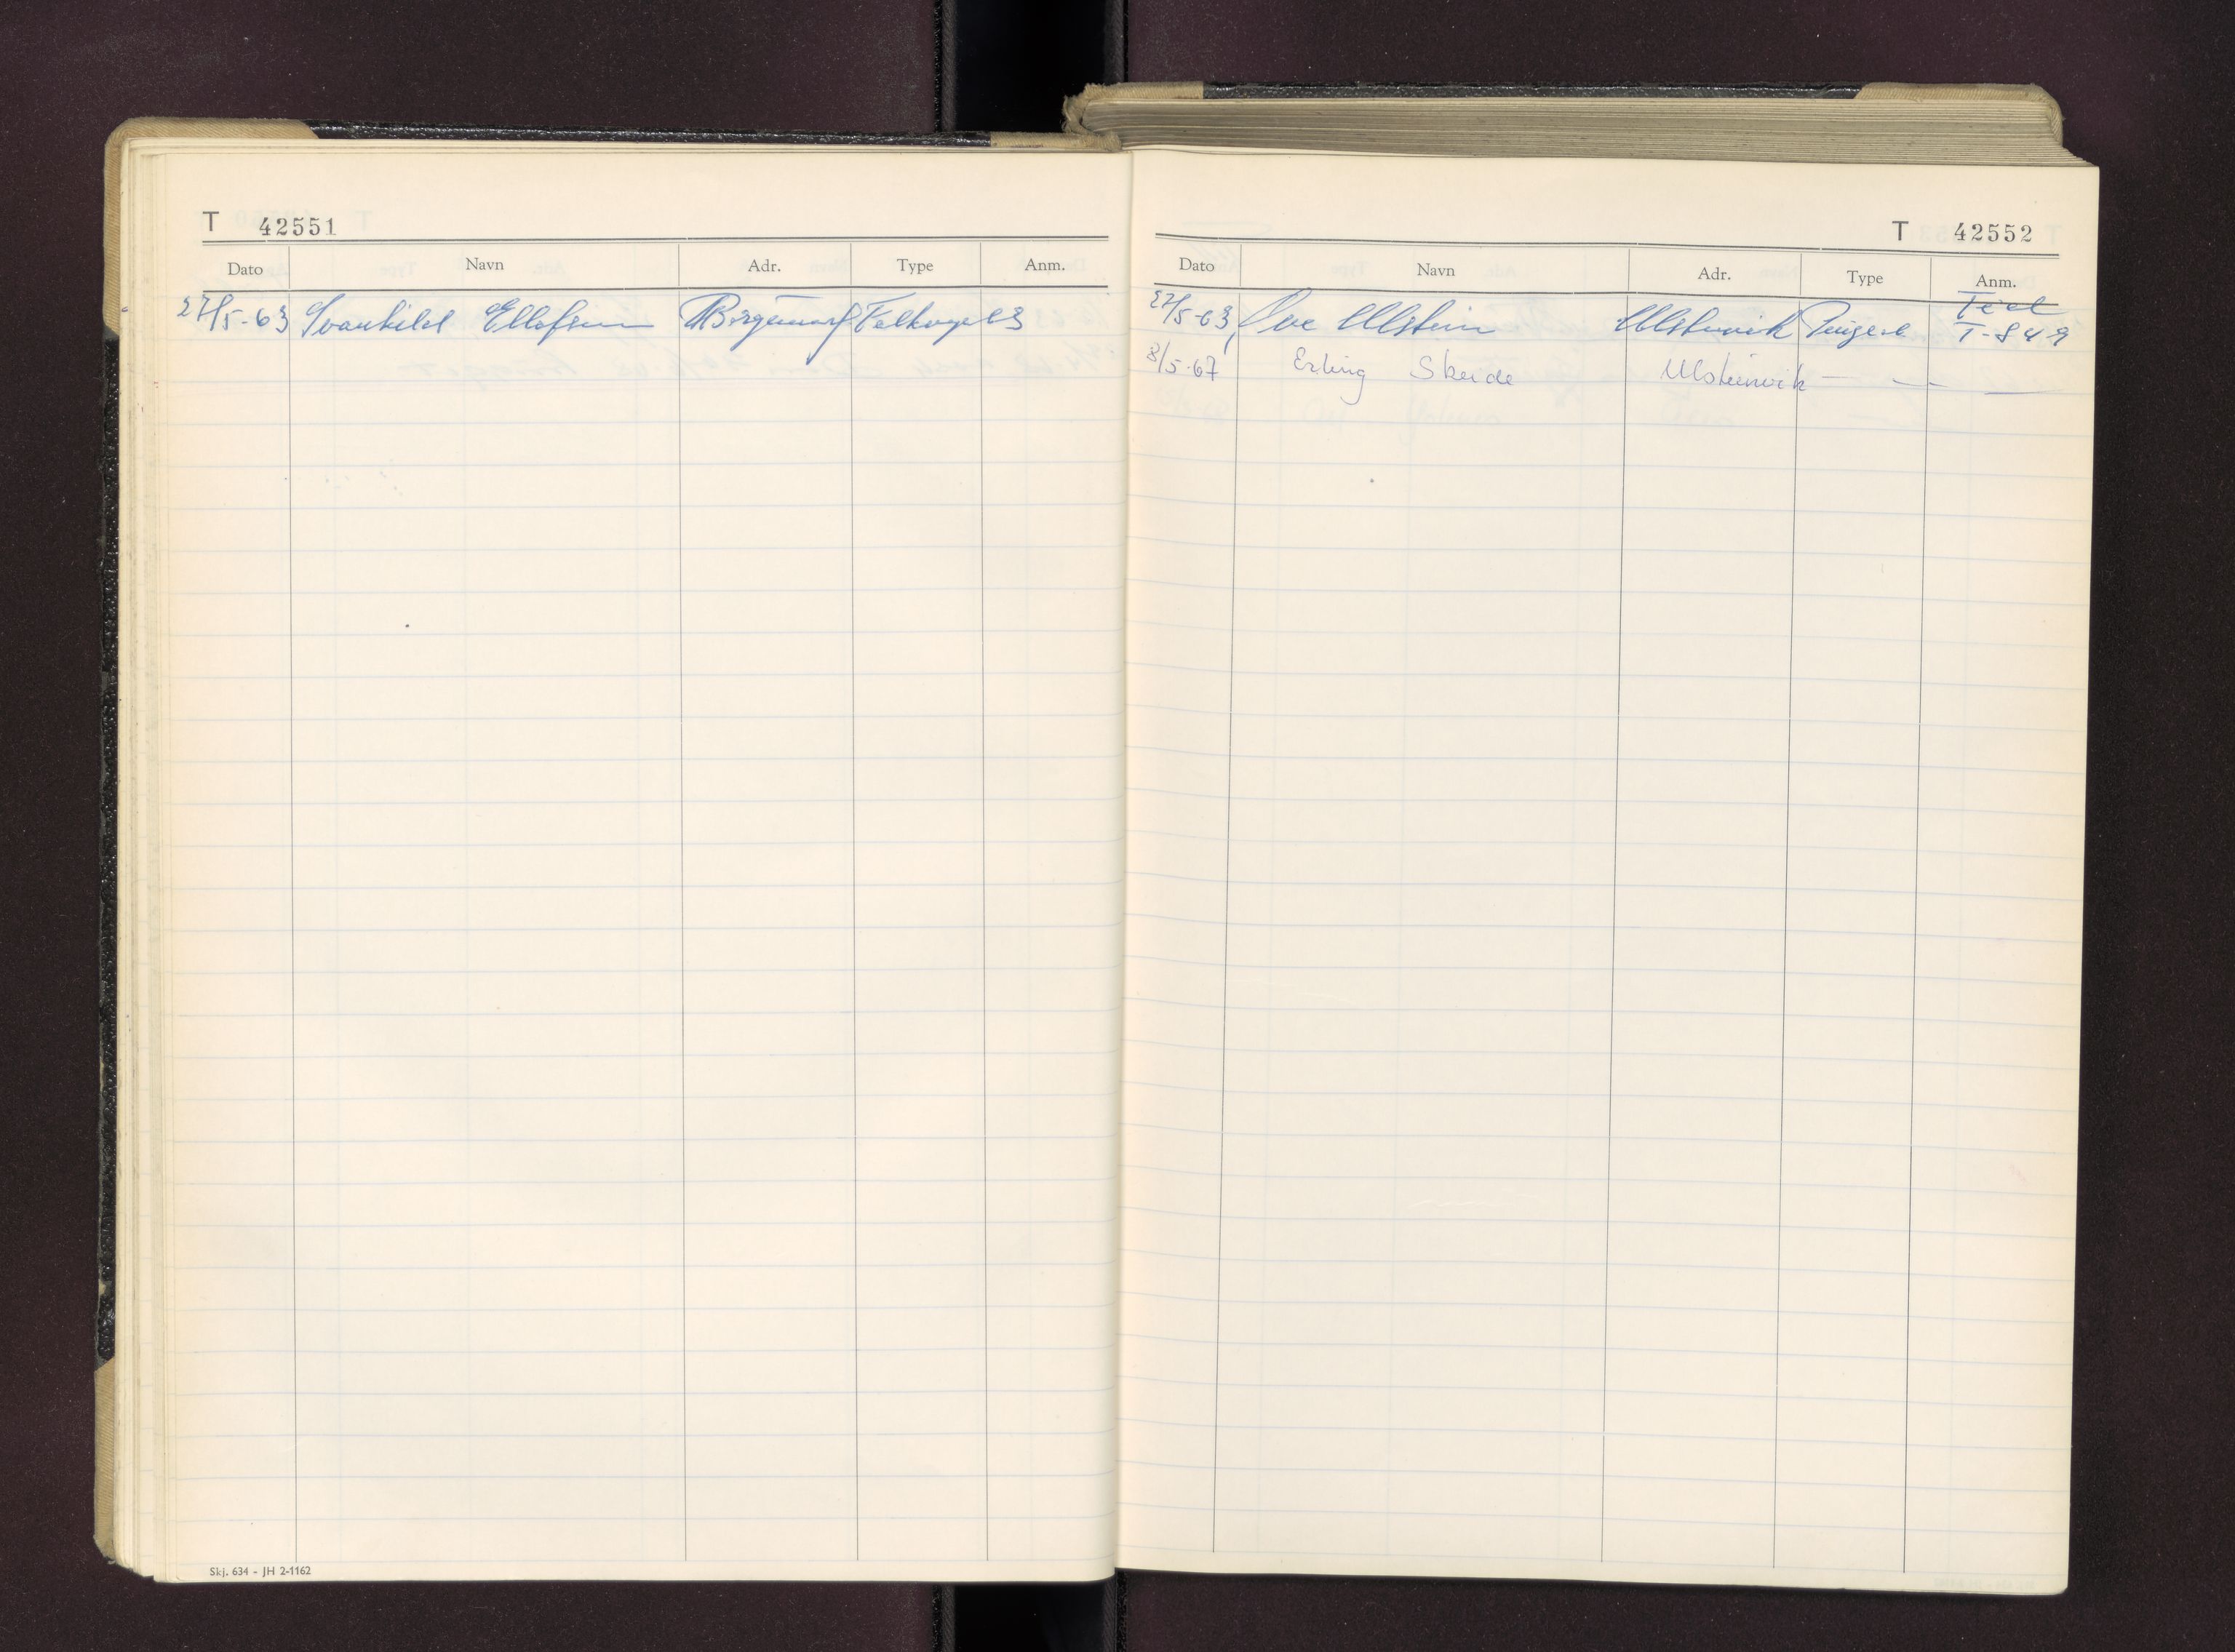 T 42551
Dato Navn Adr. Type Anm.
27/5-63 Svanhild Ellefsen
Skj. 634 - JH 2-1162
T 42552
Dato Navn Adr. Type Anm.
27/5-63 Ove Ulstein Ulsteinvik
T-849
8/5-67 Erling Skeide Ulsteinvik — — —